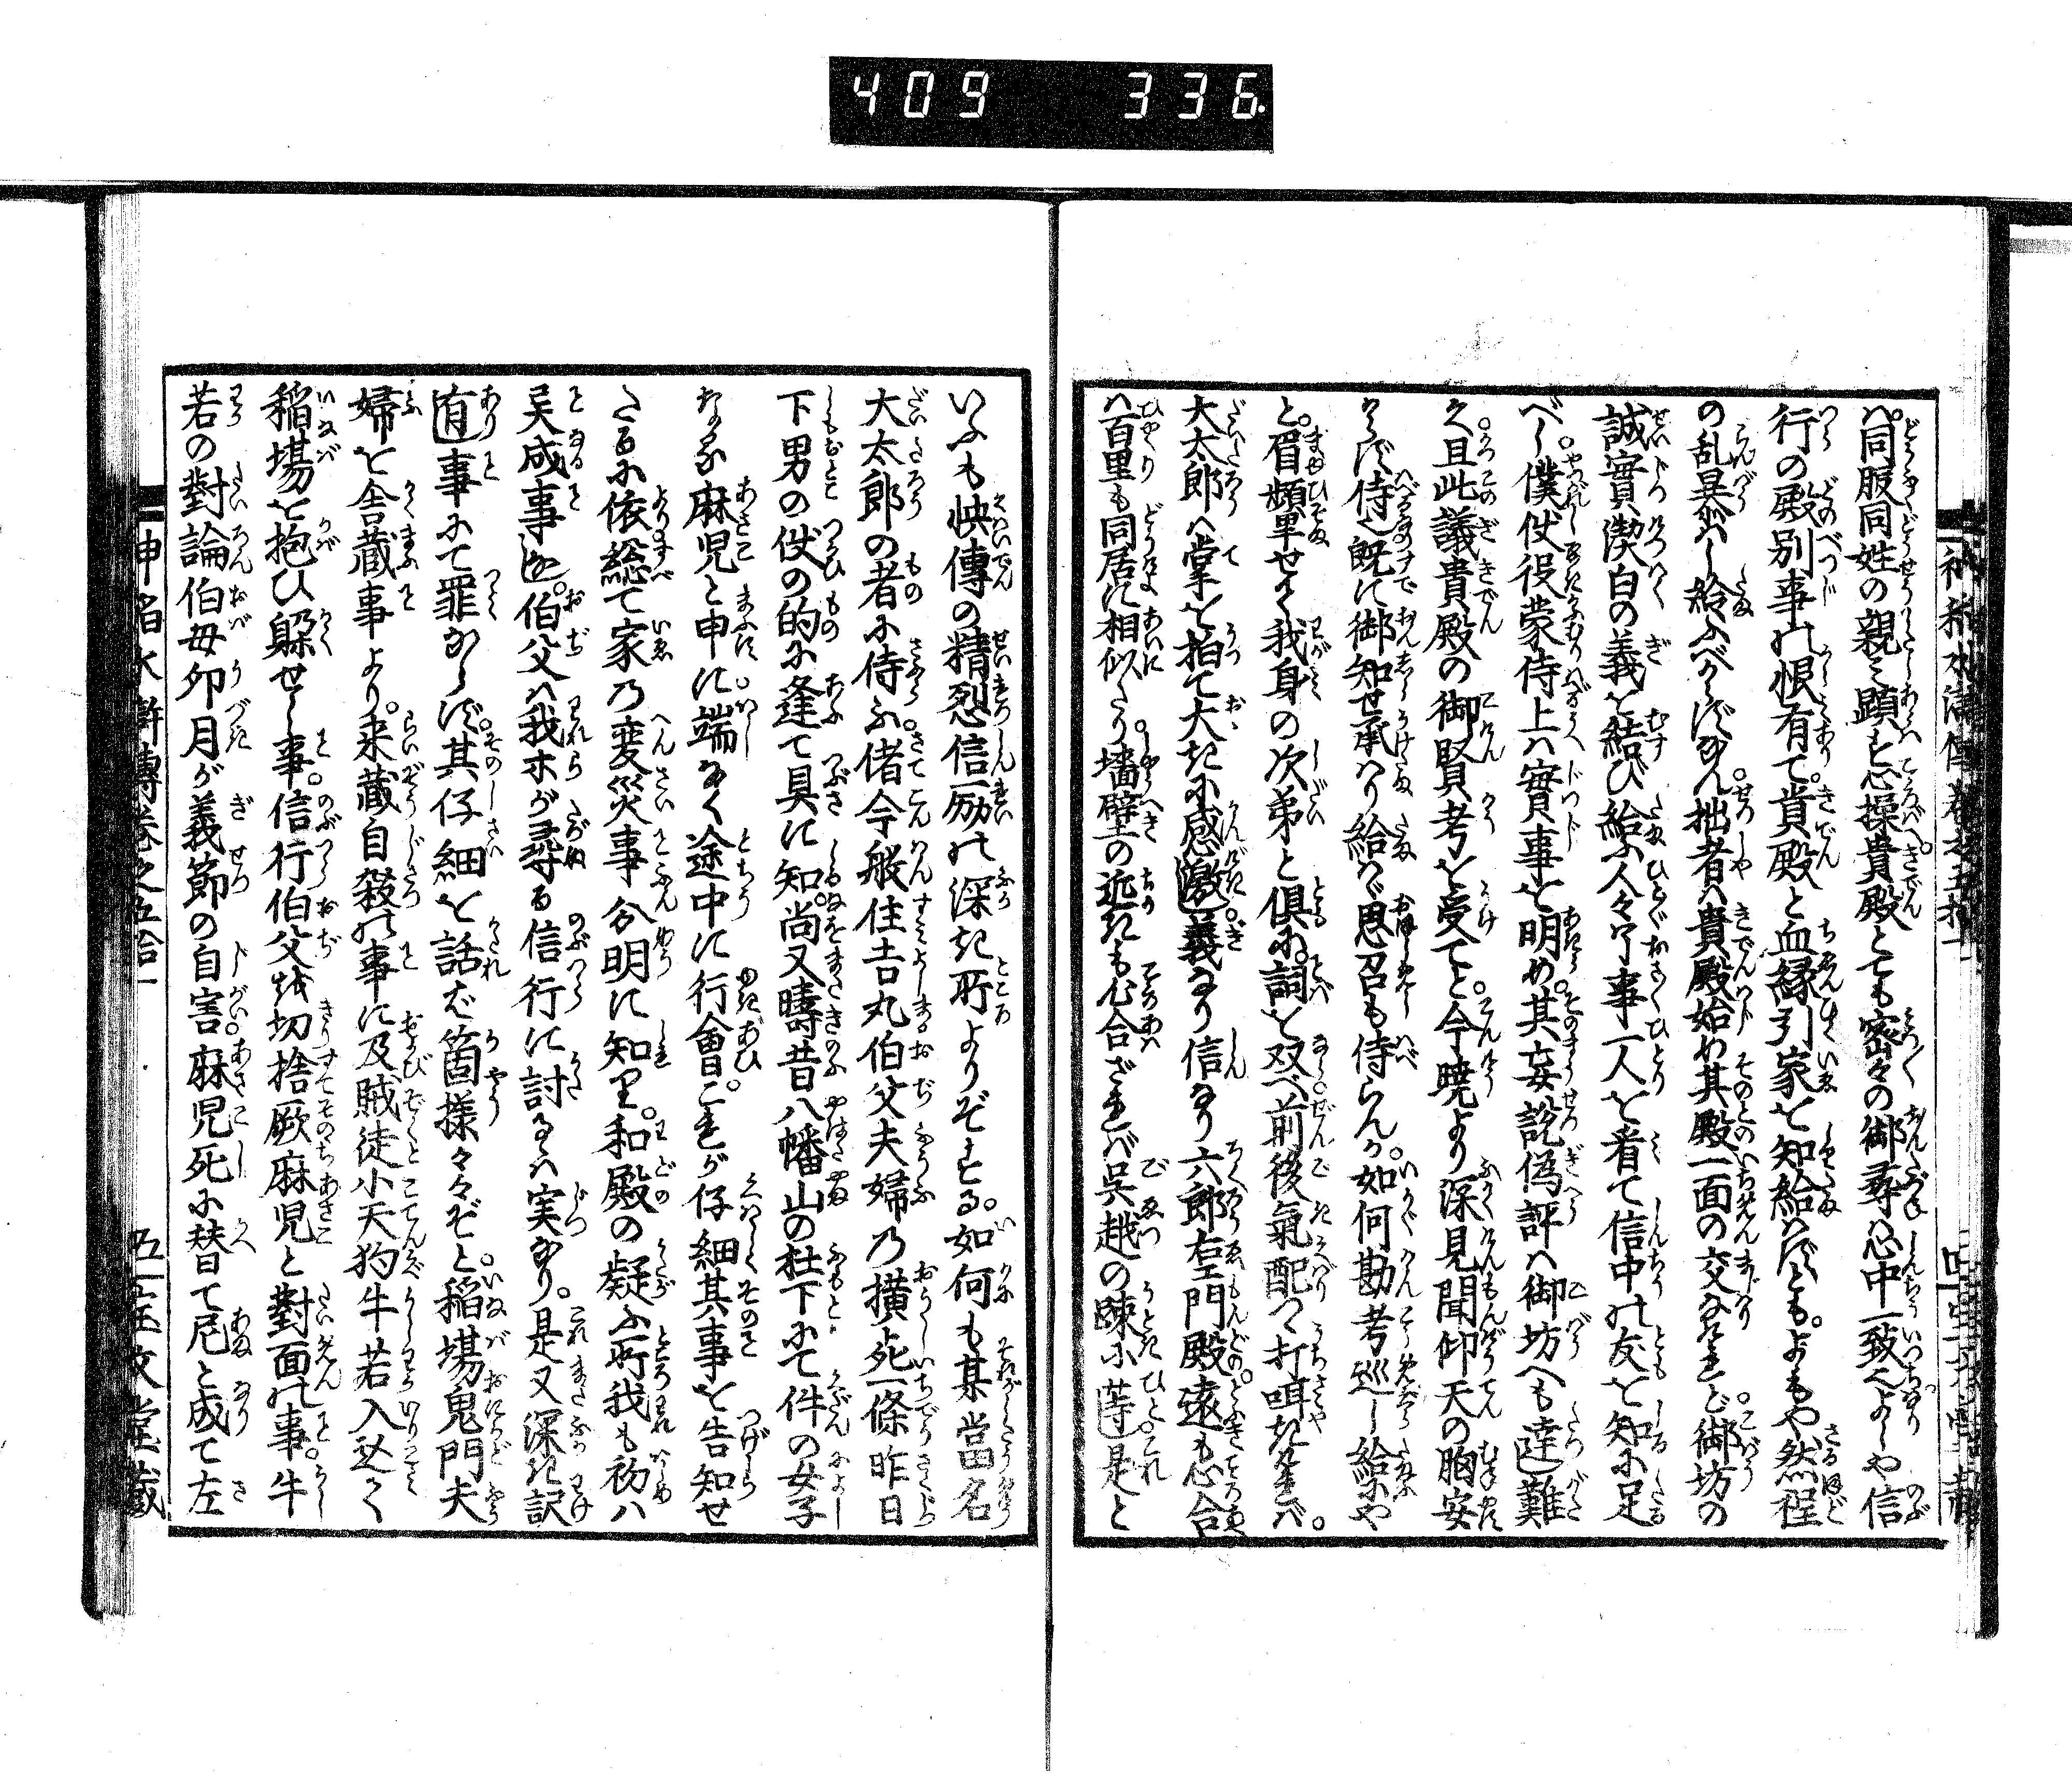 409 336
ハ同服同姓の親ミ顕す心操貴殿とても密々の御尋ハ心中一致なりよしや信
行の殿別事の恨有て貴殿と血縁引家を知給はずとも。よもや然程
の乱暴ハし給ふべからずなん。拙者ハ貴殿始め其殿一面の交なれど御坊の
誠實潔白の義を結び給ふ人々ゟ事一人を看て信中の友を知に足
べし。僕伏役蒙侍上ハ實事を明め。其妄説偽評ハ御坊へも達難
く且此議貴殿の御賢考を受てと。今暁より深見聞仰天の胸安
からず侍之既に御知せ承ハり給ハゞ思召も侍らんか。如何勘考巡し給ふや
と。眉顰せく我身の次弟と倶に。詞を双べ前後氣配て打咡きけれバ。
大太郎ハ掌を拍て大きに感激。義なり信なり六郎左エ門殿遠も心合
ハ百里も同居に相似たり。墻壁の近きも心合ざれバ呉越の疎に等是と
いふも快傳の精烈信励の深き所よりぞする。如何も某當名
大太郎の者に侍ふ。偖今般住吉丸伯父夫婦乃横死一條昨日
下男の伏の的に逢て具に知。尚又疇昔八幡山の杜下にて件の女子
なる麻児と申に端なく途中に行會。これが仔細其事を告知せ
たるに依総て家乃変災事分明に知る。和殿の疑ふ所我も初ハ
異成事也。伯父ハ我ホが尋る信行に討るゝハ実なり。是又深き訳
有事にて罪からず。其仔細を話ば箇様々々ぞと。稲場鬼門夫
婦を舎蔵事より。来蔵自殺の事に及賊徒小天狗牛若入込て
稲場を抱ひ躱せし事。信行伯父を切捨厥麻児と對面の事。牛
若の對論伯母卯月が義節の自害。麻児死に替て尼と成て左
五玉文堂藏